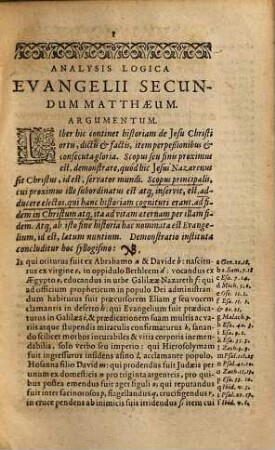 1
ANALYSIS LOGICA
EVANGELII SECUN-
DUM MATTHÆUM.
ARGUMENTUM.
Liber hic continet historiam de Jesu Christi
ortu, dictis & factis, item perpessionibus &
consecuta gloria. Scopus seu finu proximus
est, demonstrare, quod hic Jesus Nazarenus
sit Christus, id est, servator mundi. Scopus principalis,
cui proximus ille subordinatus est atq, inservit, est, ad-
ducere electos, qui hanc historiam cognituri erant, ad fi-
dem in Christum atq, ita ad vitam æternam per illam fi-
dem. Atq, ab isto fine historia hæc nominata est Evange-
lium, id est, lætum nuntium. Demonstratio instituta
concluditur hoc syllogismo:
Is qui oriturus fuit ex Abrahamo a & Davide b: nascitu-
rus ex virgine c, in oppidulo Bethleem d: vocandus ex
Ægypto e, educandus in urbe Galilææ Nazareth f: qui
ad officium propheticum in populo Dei adminstran-
dum habiturus fuit præcursorem Eliam g seu vocem
clamantis in deserto h: qui Evangelium fuit primum
prædicaturus in Galilæa i, & prædicationem suam multis ac va-
riis atque stupendis miraculis confirmaturus k, sanan-
do scilicet morbos incurabiles & vitia corporis incme-
dabilia, solo verbo seu imperio: qui Hierosolymam
fuit ingressurus insidens asino l, acclamante populo,
Hosanna filio David m: qui prodendus fuit Judæis per u-
num ex domesticis n pro triginta argenteis o, pro qui-
bus postea emendus fuit ager figuli p, qui reputandus
fuit inter facinorosos p, flagellandus q, crucifigendus r,
in cruce pendens ab inimicis suis irridendus s: item cui
a Gen. 22.18